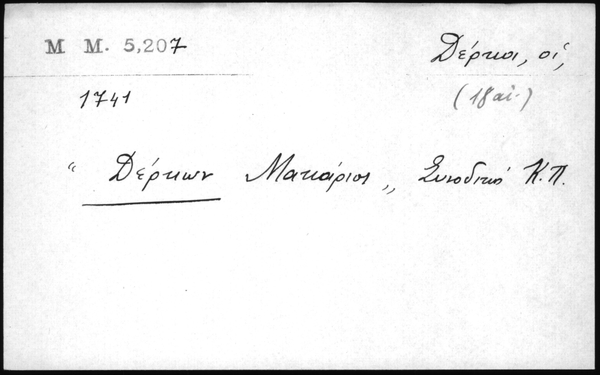 M M. 5,207
Δέρκοι, οἱ,
1741
(18 αἰ.)
“ Δέρκων Μακάριος „ Συνοδικό Κ.Π.